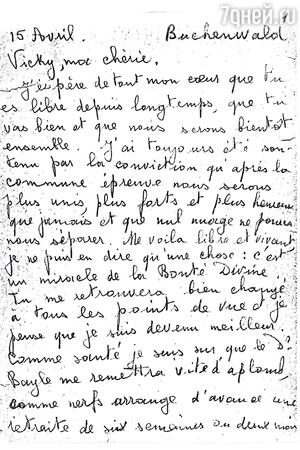 7дней.ru
1
15 Avril. Buchenwald
Vicky, ma chérie.
J'espère de tout mon cœur que tu
es libre depuis longtemps, que tu
vas bien et que nous serons bientôt
ensemble. J'ai toujours été sou-
tenu par la conviction qu'après la
commune épreuve nous serons
plus unis, plus forts et plus heureux
que jamais et que nul nuage ne pourra
nous séparer. Me voila libre et vivant
je ne puis en dire qu'une chose : c'est
un miracle de la Bonté Divine.
Tu me retrouvera bien changé
à tous les points de vue et je
pense que je suis devenu meilleur.
Comme santé je suis sur que le Dr
Bayle me remettra vite d'aplomb,
comme nerfs arrange d'avance une
retraite de six semaines ou deux mois